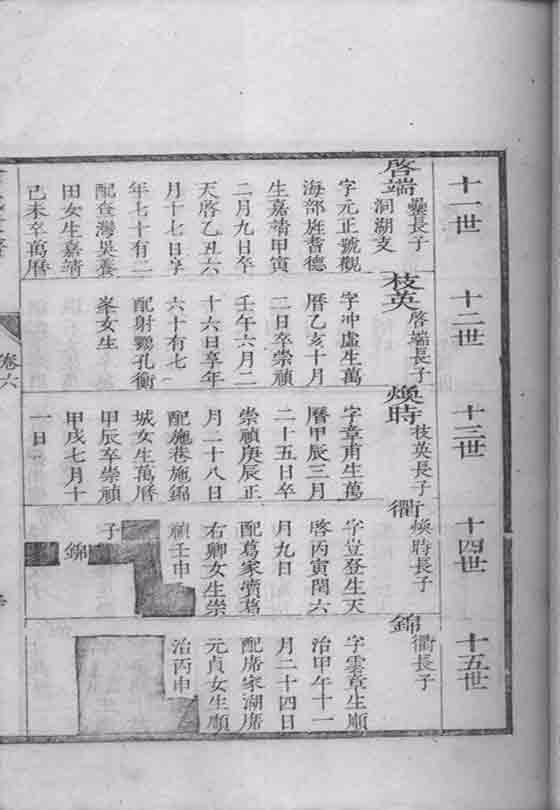 十一世
啓端
長子
洞湖支
字元正號觀
海部旌耆德
生嘉靖甲寅
二月九日卒
天啓乙丑六
月十七日享
年七十有二
配查灣吳養
田女生嘉靖
己未卒萬曆
十二世
枝英
啓端長子
字冲虛生萬
曆乙亥十月
二日卒崇禎
壬午六月二
十六日享年
六十有七
配射鸚孔衡
峯女生
十三世
煥時
枝英長子
字章甫生萬
曆甲辰三月
二十五日卒
崇禎庚辰正
月二十八日
配施巷施錦
城女生萬曆
甲辰卒崇禎
甲戌七月十
一日
十四世
衢
煥時長子
字豈登生天
啓丙寅閏六
月九日
配葛家濆葛
右卿女生崇
禎壬申
子
錦
十五世
錦
衢長子
字雲章生順
治甲午十一
月二十四日
配席家湖席
元貞女生順
治丙申
卷六